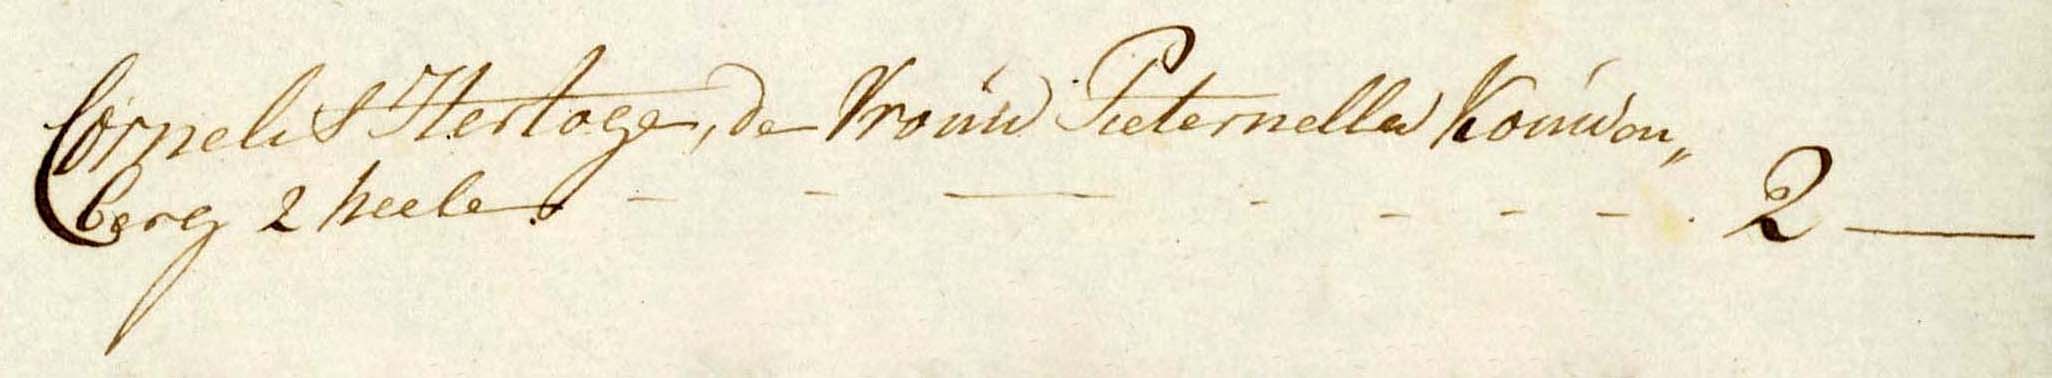 Cornelis Hertoge, de Vrouw Pieternella Kouwen„
berg 2 heele. - - — - - - - . 2 —